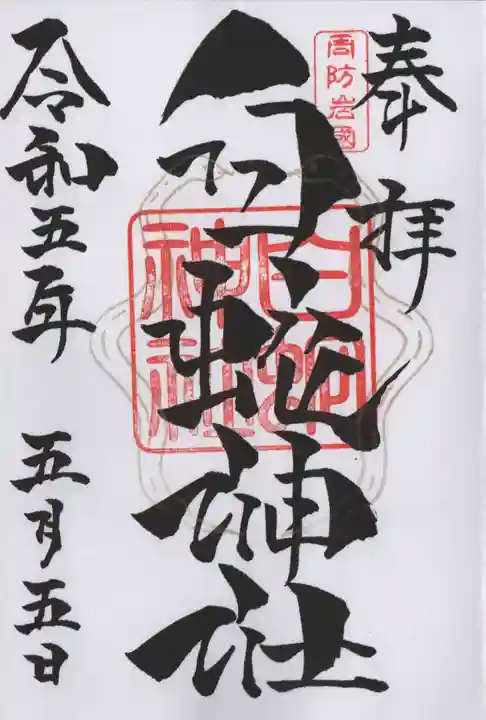 奉拝
周防岩國
白蛇神社
白蛇
神社
令和五年 五月五日